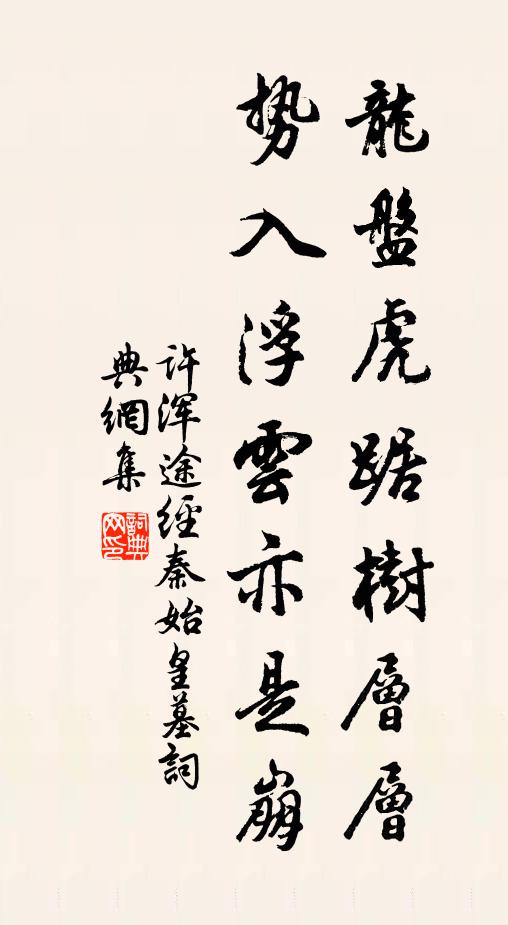 龍盤虎踞樹層層
勢入浮雲亦是崩
許渾途經秦始皇墓詞
典網集
詞典網印